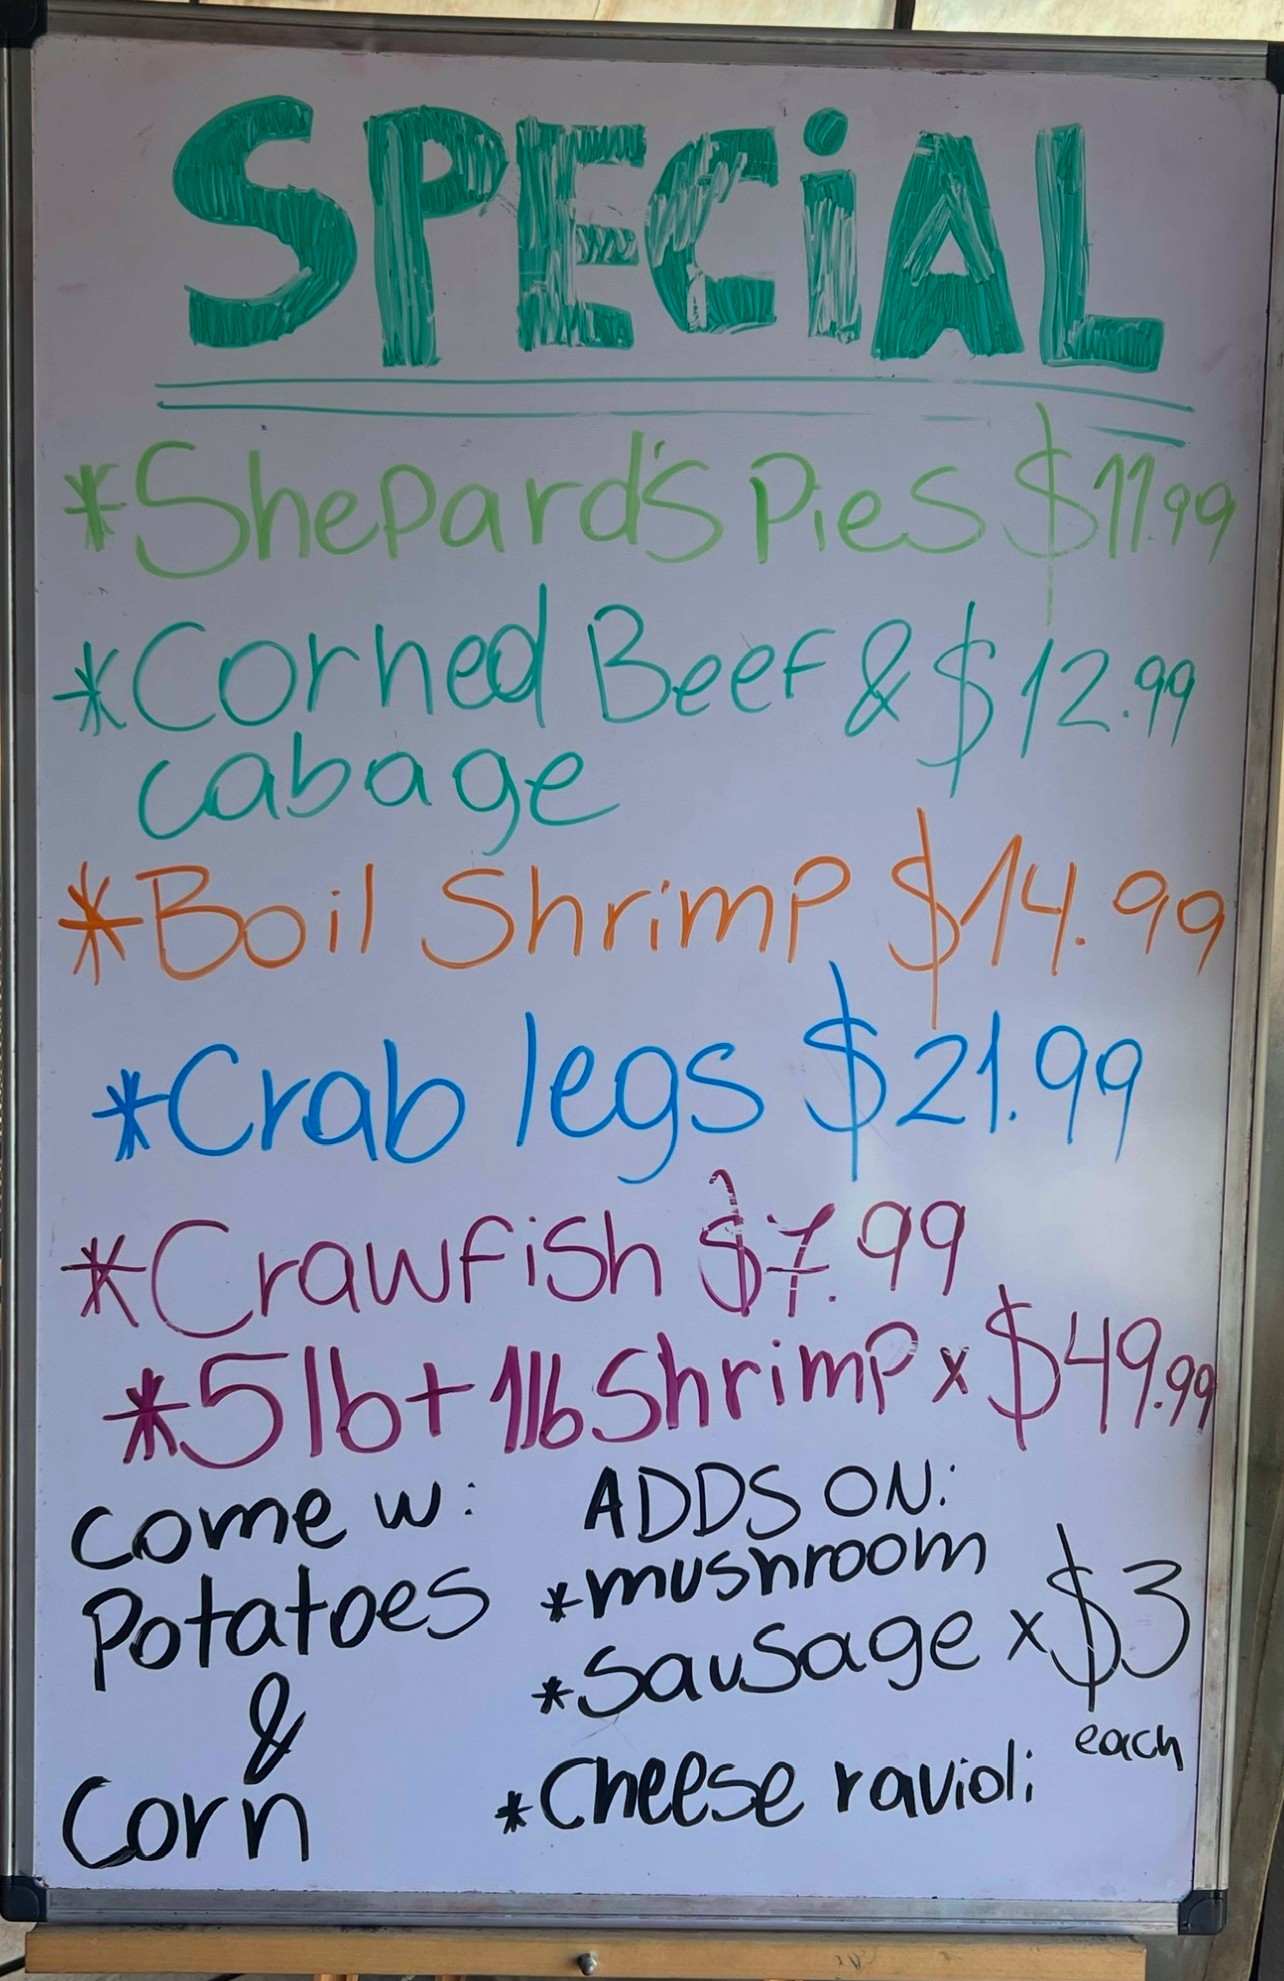 SPECiAL
*Shepard's Pies $11.99
*Corned Beef & $12.99
cabage
*Boil Shrimp $14.99
*Crab legs $21.99
*Crawfish $7.99
*5lb+1lb Shrimp x $49.99
come w:
Potatoes
&
Corn
ADDS ON:
*mushroom
*Sausage x $3
each
*Cheese ravioli